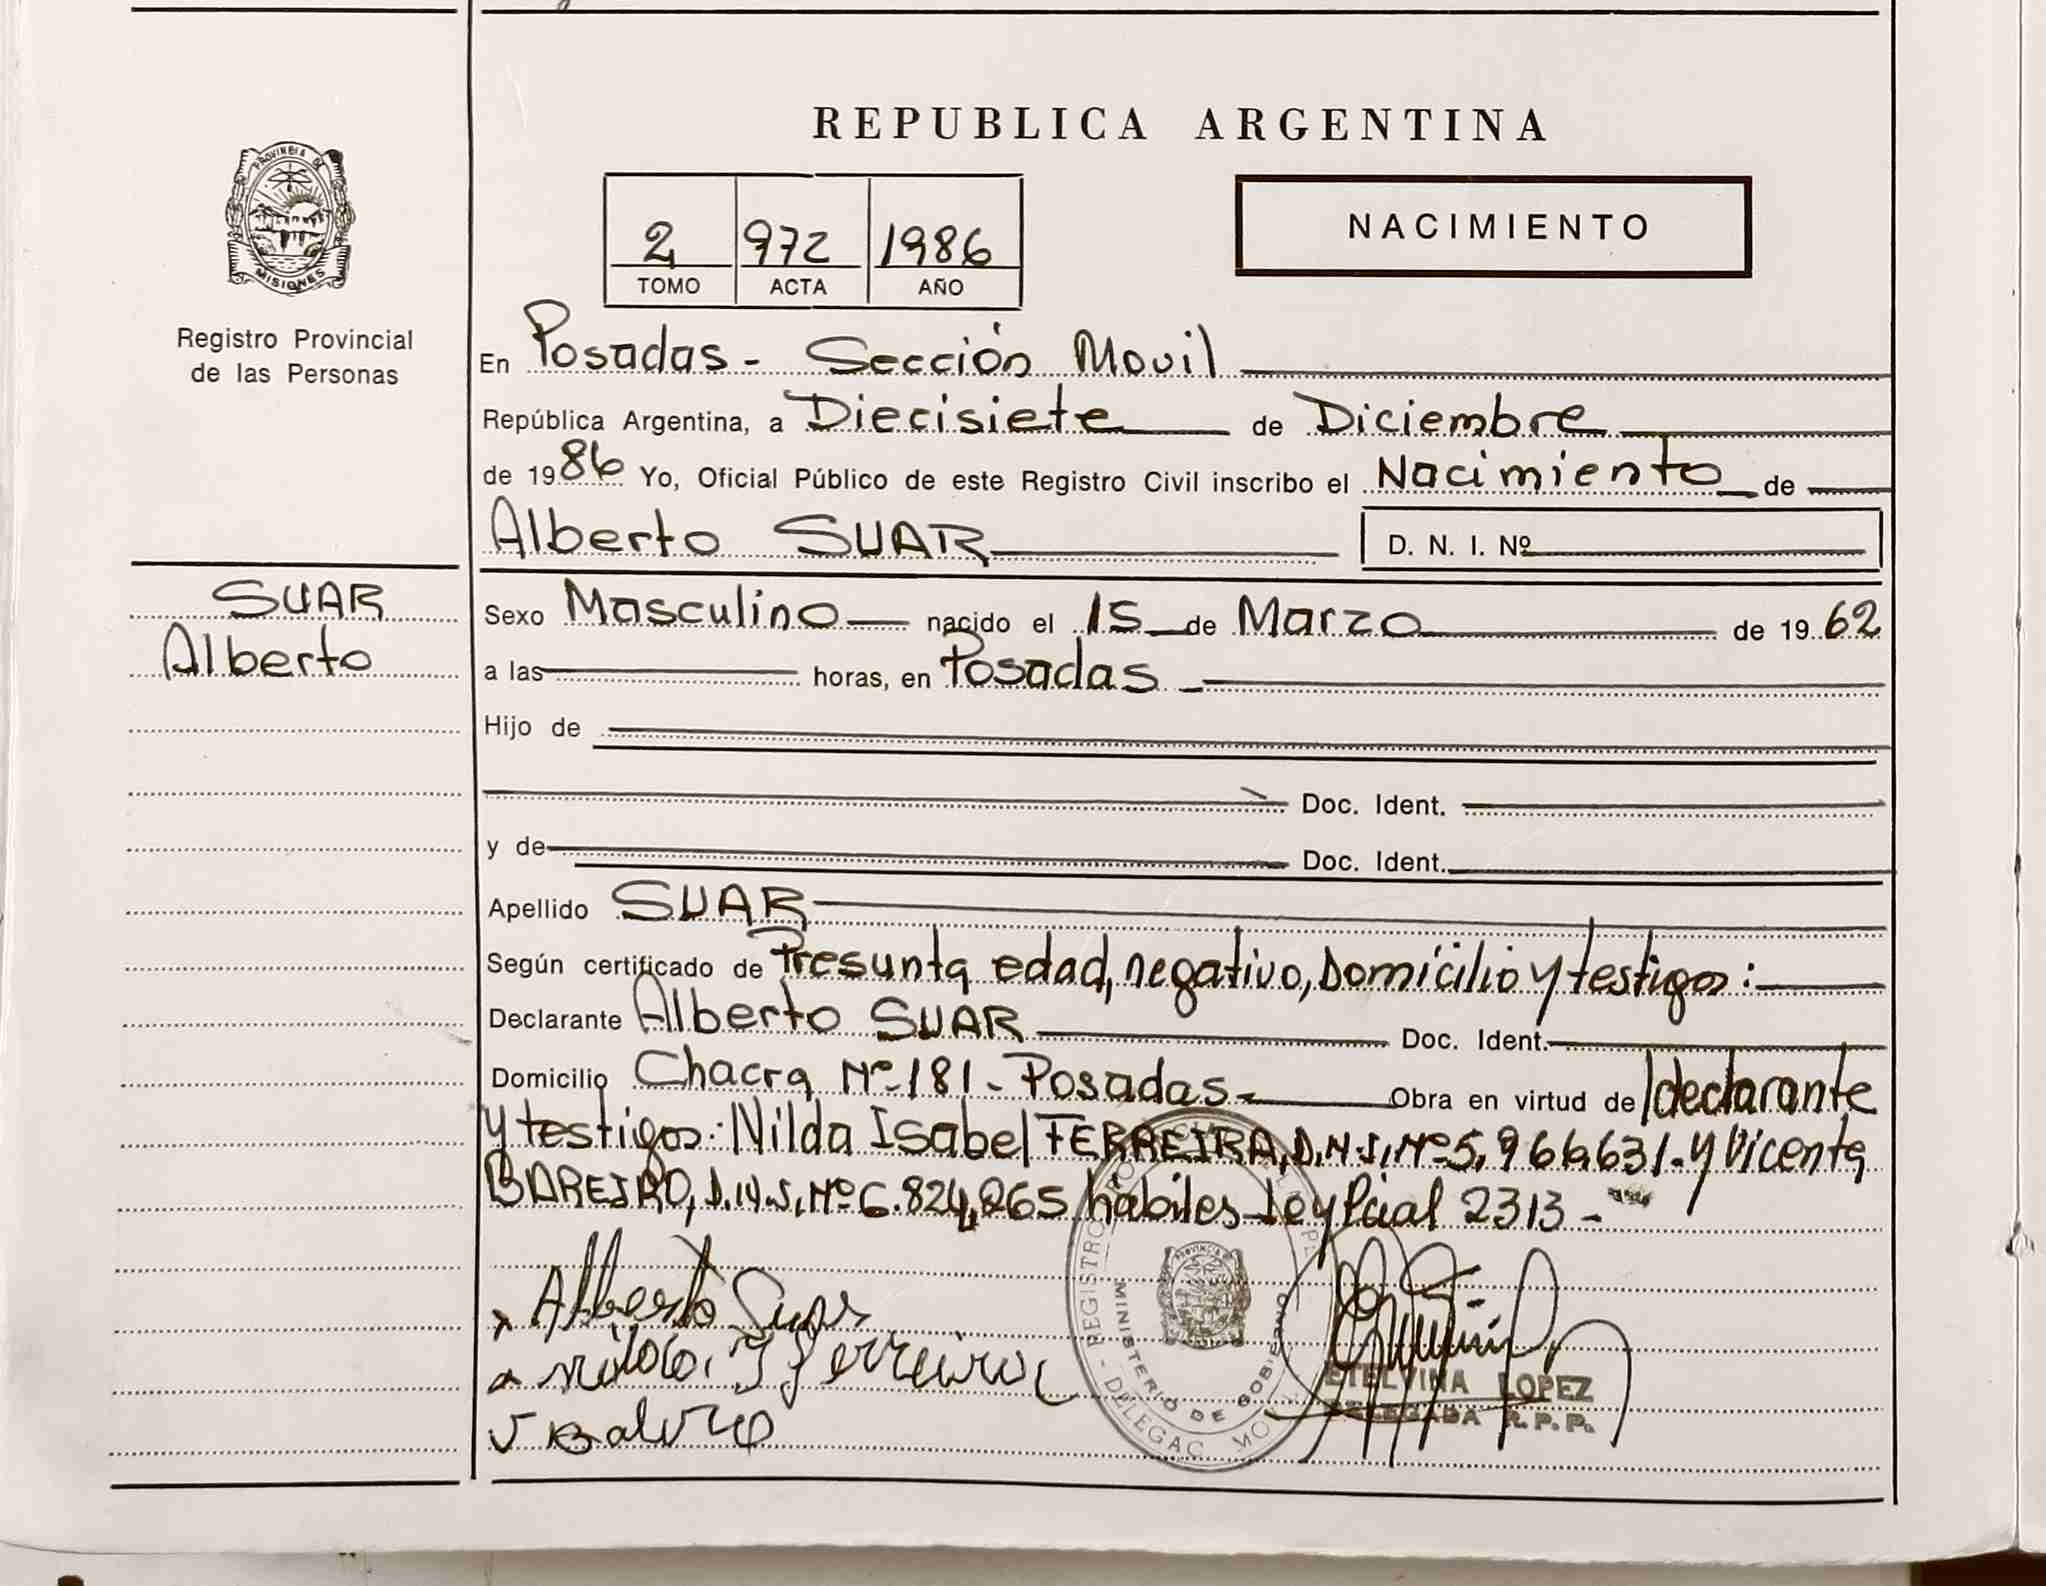 REPUBLICA ARGENTINA
PROVINCIA DE
MISIONES
Registro Provincial
de las Personas
2 972 1986
TOMO ACTA AÑO
NACIMIENTO
En Posadas - Sección Movil
República Argentina, a Diecisiete de Diciembre
de 1986 Yo, Oficial Público de este Registro Civil inscribo el Nacimiento de
Alberto SUAR D. N. I. Nº
SUAR
Alberto
Sexo Masculino nacido el 15 de Marzo de 1962
a las horas, en Posadas
Hijo de
Doc. Ident.
y de Doc. Ident.
Apellido SUAR
Según certificado de Presunta edad, negativo, Domicilio y testigos:
Declarante Alberto SUAR Doc. Ident.
Domicilio Chacra Nº 181 - Posadas - Obra en virtud de declarante
y testigos: Nilda Isabel FERREIRA, D.N.I, Nº 5.966.631. y Vicenta
BAREIRO, D.N.I, Nº 6.824.265 hábiles Ley Pcial 2313 -
Alberto Suar
ETELVINA LOPEZ
DELEGADA R. P. P.
MINISTERIO DE GOBIERNO